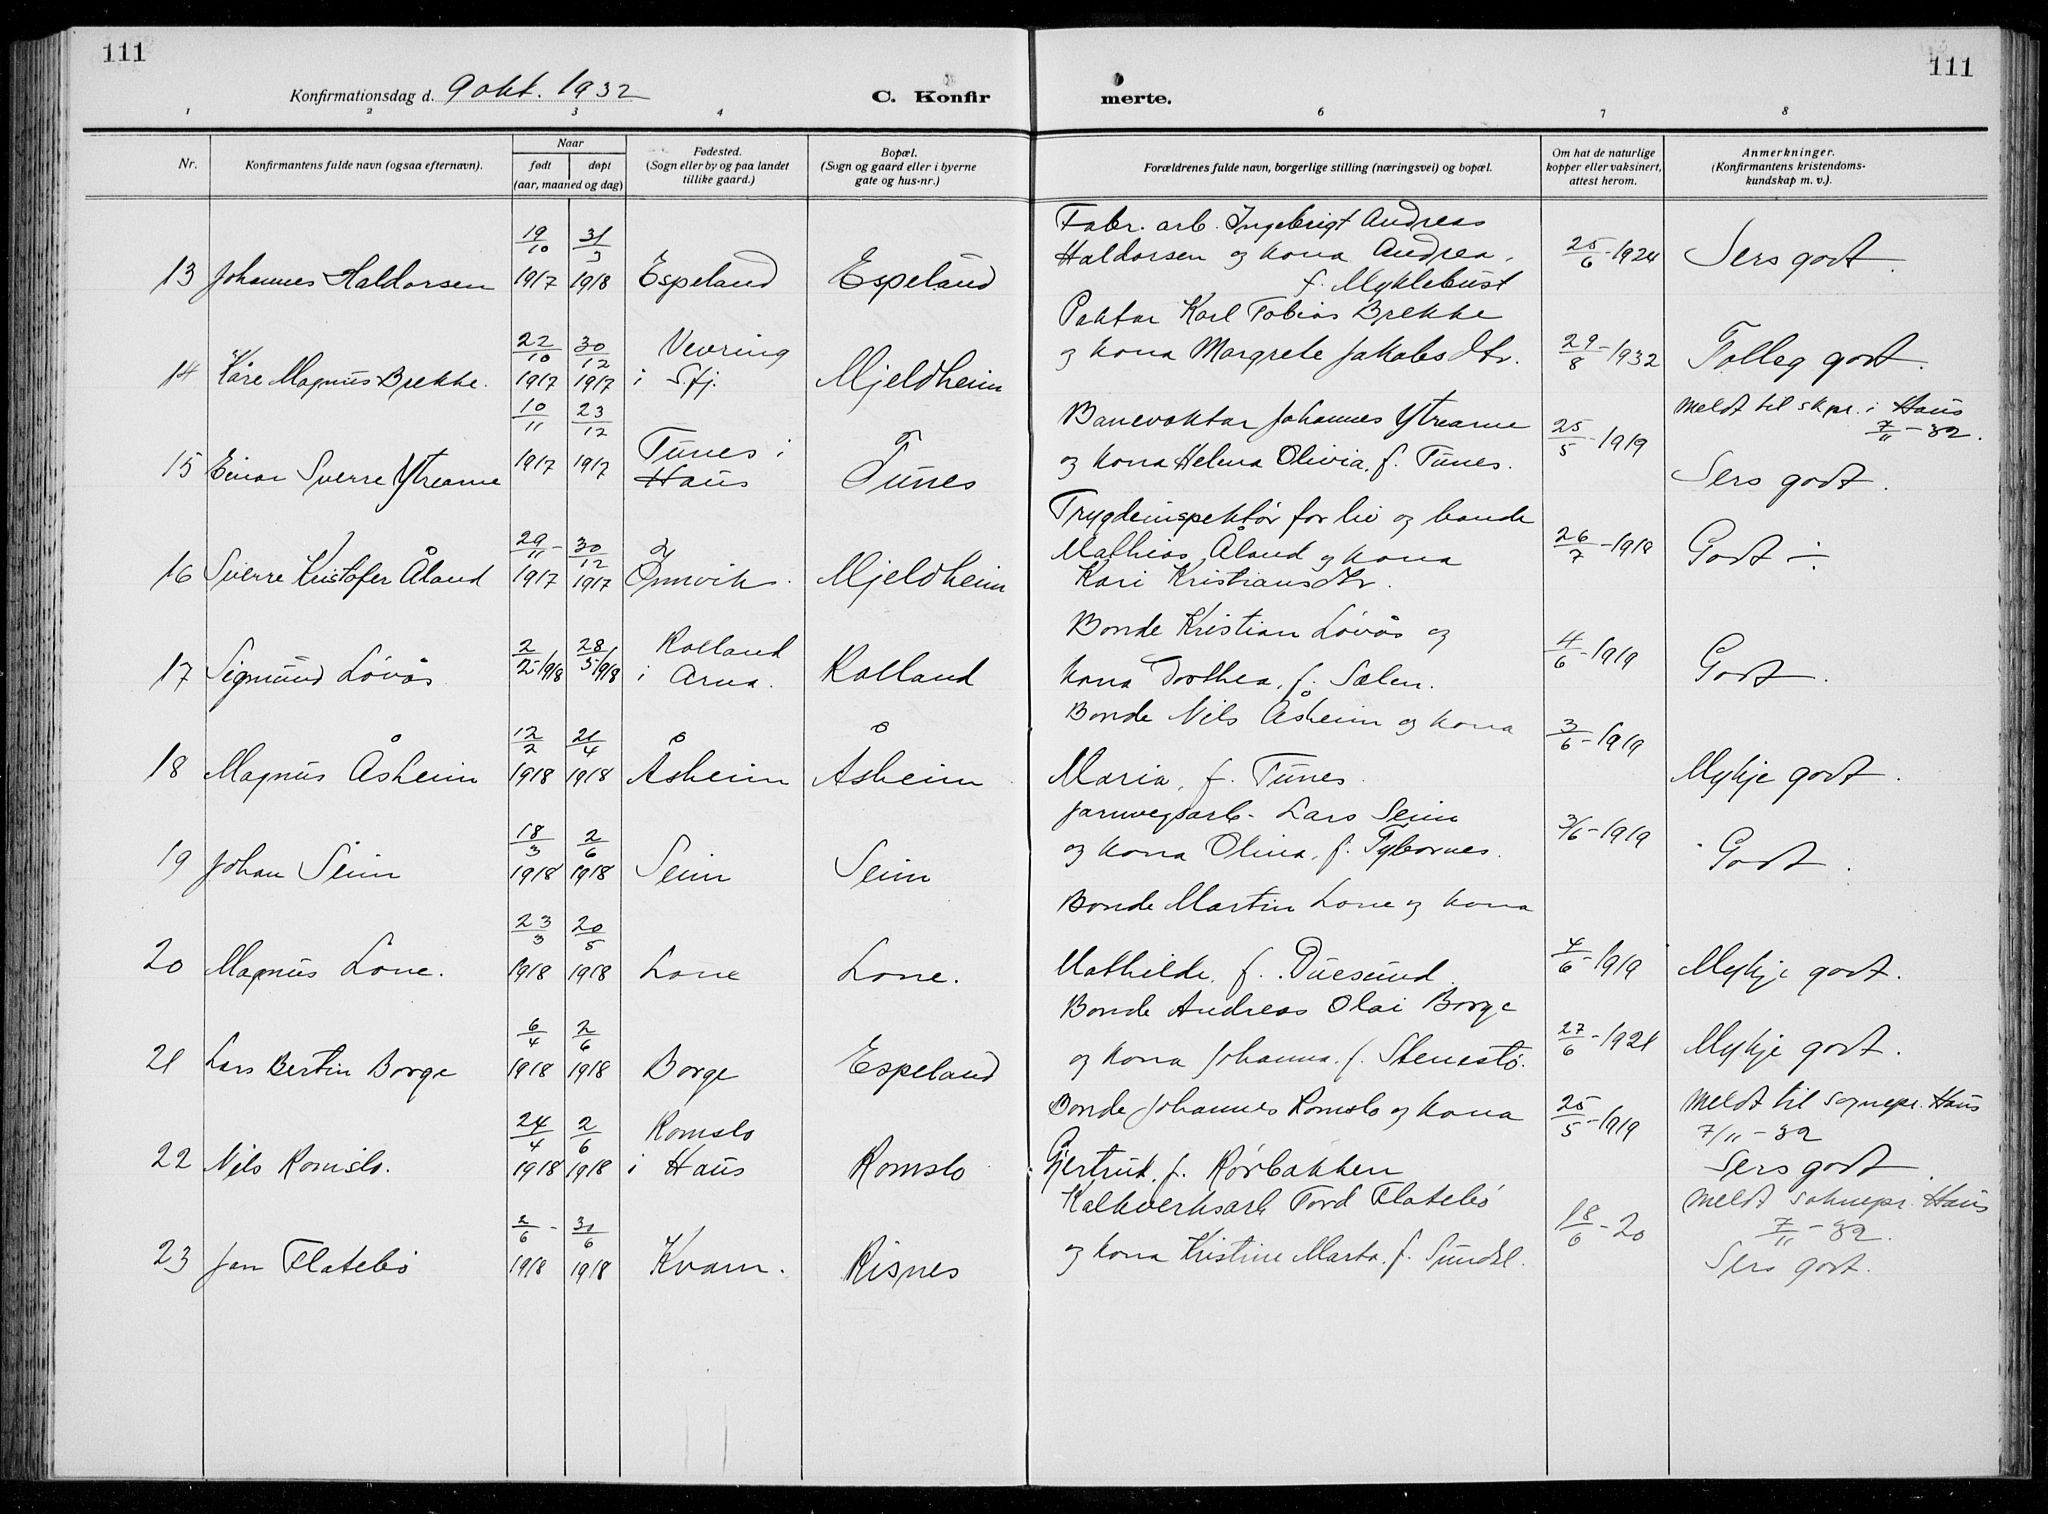 111
111
Konfirmationsdag d. 9 okt. 1932
C. Konfir
merte.
1 2 3 4 5 6 7 8
Nr.
Konfirmantens fulde navn (ogsaa efternavn).
Naar
født
døpt
(aar, maaned og dag)
Fødested.
(Sogn eller by og paa landet
tillike gaard.)
Bopæl.
(Sogn og gaard eller i byerne
gate og hus-nr.)
Forældrenes fulde navn, borgerlige stilling (næringsvei) og bopæl.
Om hat de naturlige
kopper eller vaksinert,
attest herom.
Anmerkninger.
(Konfirmantens kristendoms-
kundskap m. v.).
13 Johannes Haldorsen
19/10 1917
31/3 1918
Espeland
Espeland
Fabr. arb. Ingebrigt Andreas
Haldorsen og kona Andrea,
f. Myklebust
25/6-1924
Sers godt.
14 Kåre Magnus Brekke.
22/10 1917
30/12 1917
Vevring
i S.fj.
Mjeldheim
Paktar Karl Tobias Brekke
og kona Margrete Jakobsdtr.
29/8-1932
Tolleg godt.
15 Einar Sverre Ytrearne
10/11 1917
23/12 1917
Tunes i
Haus
Tunes
Banevaktar Johannes Ytrearne
og kona Helena Olivia, f. Tunes.
25/5-1919
Meldt til skpr. i Haus
7/11-32.
Sers godt.
16 Sverre Kristofer Åland
29/11 1917
30/12 1917
Mjeldheim
Trygdeinspektør for liv og
Mathias Åland og kona
Kari Kristiansdtr.
26/7-1918
Godt ÷.
17 Sigmund Løvås
2/2-1918
28/5 1918
Rolland
i Arna.
Rolland
Bonde Kristian Løvås og
kona Dorthea, f. Sælen.
4/6-1919
Godt.
18 Magnus Åsheim
12/2 1918
21/4 1918
Åsheim
Åsheim
Bonde Nils Åsheim og kona
Maria, f. Tunes.
3/6-1919
Mykje godt.
19 Johan Seim
18/3 1918
2/6 1918
Seim
Seim
Jarnvegsarb. Lars Seim
og kona Olina, f. Tybornes.
3/6-1919
Godt.
20 Magnus Lone.
23/3 1918
20/5 1918
Lone
Lone.
Bonde Martin Lone og kona
Mathilde, f. Duesund
4/6-1919
Mykje godt.
21 Lars Bertin Borge
6/4 1918
2/6 1918
Borge
Espeland
Bonde Andreas Olai Borge
og kona Johanna, f. Stenestø.
27/6-1921
Mykje godt.
22 Nils Romslo.
24/4 1918
2/6 1918
Romslo
i Haus
Romslo
Bonde Johannes Romslo og kona
Gjertrud, f. Rørbakken
25/5-1919
Meldt til sognepr. Haus
7/11-32
Sers godt
23 Jan Flatebø
2/6- 1918
30/6 1918
Kvam.
Risnes
Kalkverksarb Tord Flatebø
og kona Kristine Marta, f. Sundal.
18/6-20
Meldt soknepr. Haus
7/11-32.
Sers godt.